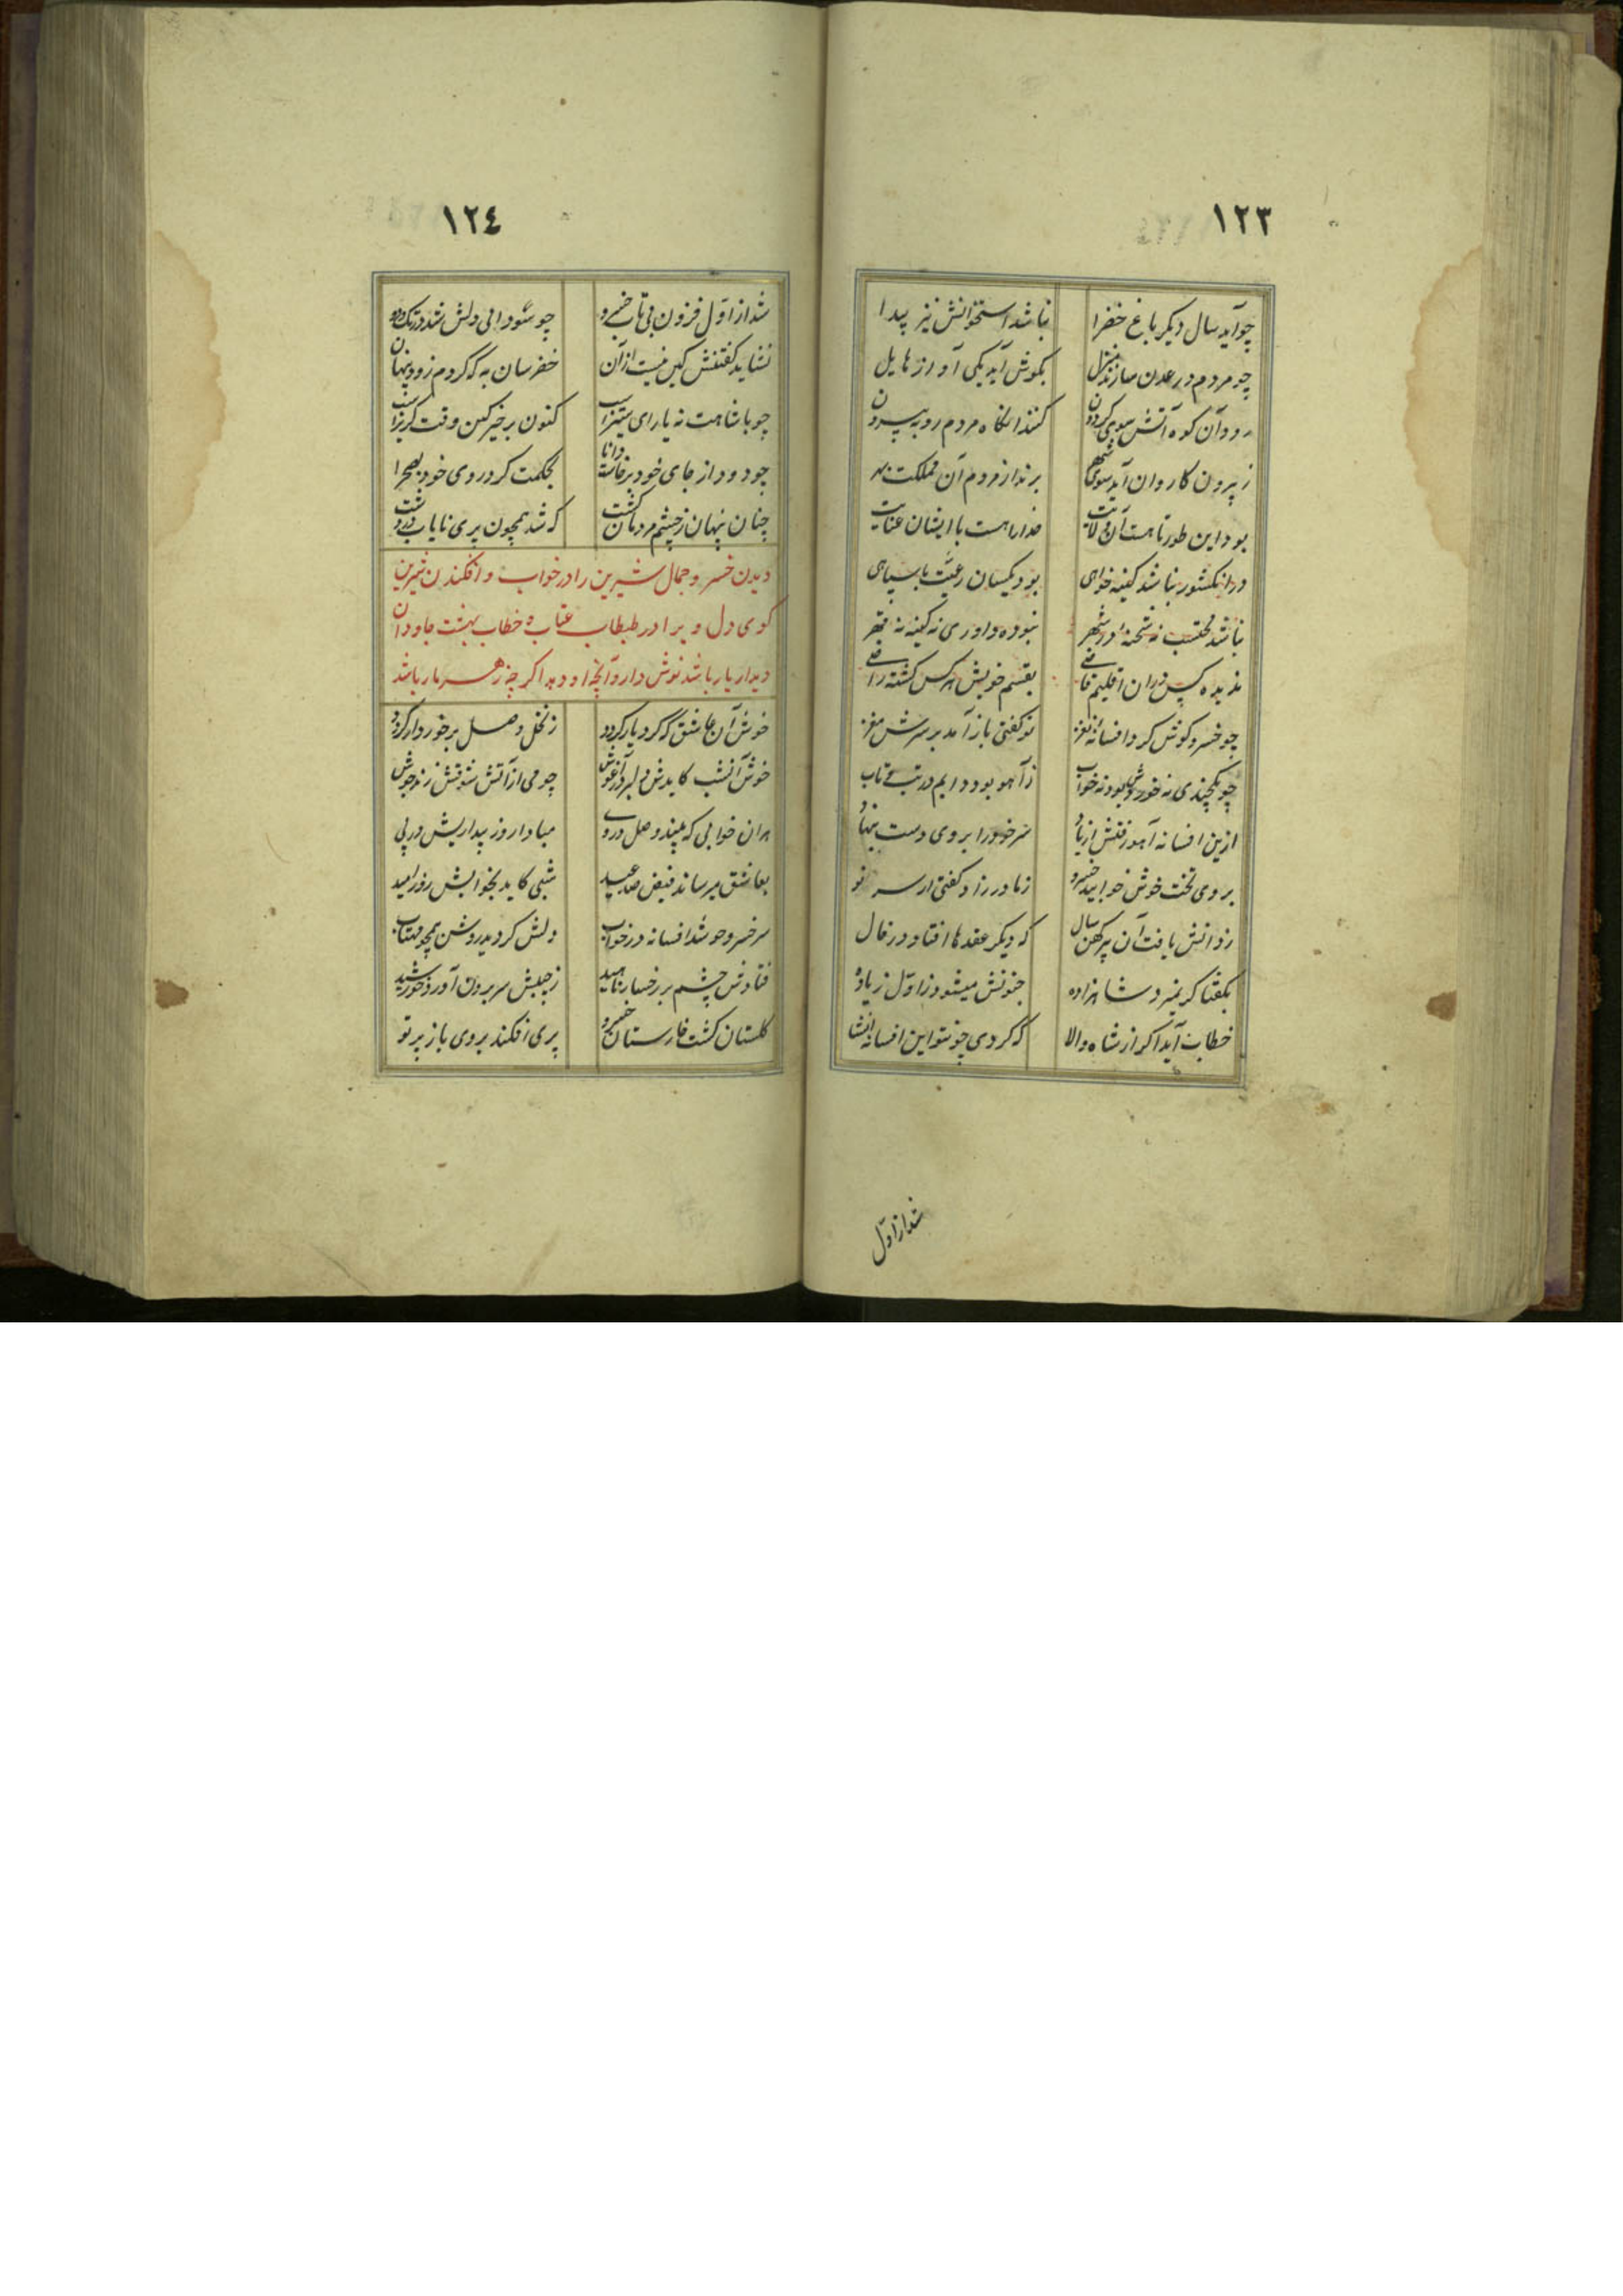 ١٢٣
چو آید سال دیکر باغ خضرا نباشد استخوانش نیز پیدا
چو مردم در عدن سازند منزل بکوش آید یکی آواز هایل
رود آن کوه آتش سوی کردون کنند انکاه مردم رو به بیرون
ز بیرون کاروان آید سوی شهر برند از مردم آن مملکت بهر
بود این طور تا هست آن ولایت خدا را هست با ایشان عنایت
در انکشور نباشد کینه خواهی بود یکسان رعیت با سپاهی
نباشد محتسب نه شحنه در شهر نبوده داوری نه کینه نه قهر
ندیده کس در ان اقلیم قاضی بقسم خویش هر کس کشته راضی
چو خسرو کوش کرد افسانه نغز تو کفتی باز آمد بر سرش مغز
چو یکچندی نه خوردش بود نه خواب ز آهو بود دایم در تب و تاب
ازین افسانه آهو رفتش از یاد سر خود را بروی دست بنهاد
بروی تخت خوش خوابید خسرو ز مادر زاد کفتی از سر نو
ز دانش یافت آن پیر کهن سال که دیکر عقدها افتاد در فال
بکفتا کر نمیرد شاهزاده جنونش میشود ز اول زیاده
خطاب آید اکر از شاه والا که کردی چون تو این افسانه انشا
شد از اول
١٢٤
شد از اول فزون بی تاب خسرو چو سودایی دلش شد در تک و دو
نشاید کفتنش کین نیست از آن خضرسان به که کردم زود پنهان
چو با شاهت نه یارای ستیز است کنون برخیز کین وقت کریز است
چو دود از جای خود برخاست دانا بحکمت کرد روی خود بصحرا
چنان پنهان ز چشم مردمان کشت که شد همچون پری نایاب در دشت
دیدن خسرو جمال شیرین را در خواب و افکندن شیرین
کوی دل ویرا در طبطاب عتاب و خطاب بهشت جاودان
دیدار یار باشد نوش دارو آنچه او دهد اکر چه زهر مار باشد
خوش آن عاشق که کرد یار کردد ز نخل وصل برخوردار کردد
خوش آنشب کایدش دلبر در آغوش چو می از آتش شوقش زند جوش
هر ان خوابی که بیند وصل در وی مبادا روز بیداریش در پی
بعاشق میرساند فیض صد عید شبی کاید بخوابش روز امید
سر خسرو چو شد افسانه در خواب دلش کردید روشن همچو مهتاب
فتادش چشم بر رخسار ناهید ز جیبش سر برون آورد خورشید
کلستان کشت خارستان خسرو پری افکند بروی باز پرتو